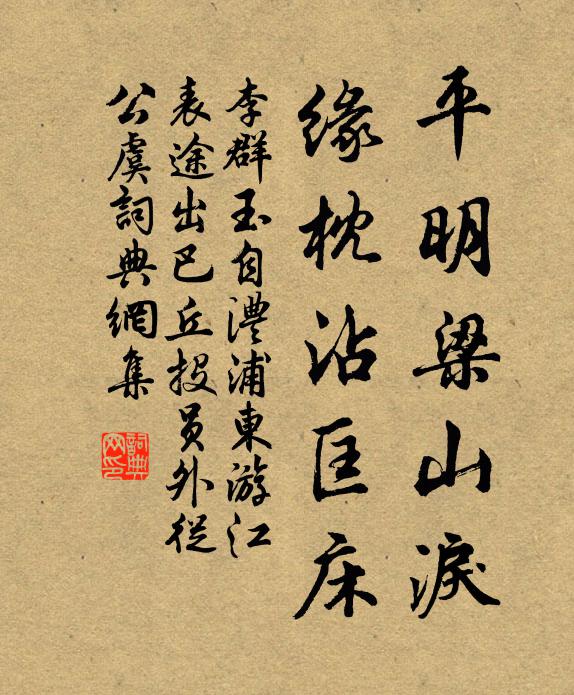 平明梁山淚
緣枕沾匡床
李群玉自澧浦東游江
表途出巴丘投員外從
公虞詞典網集
詞典网印